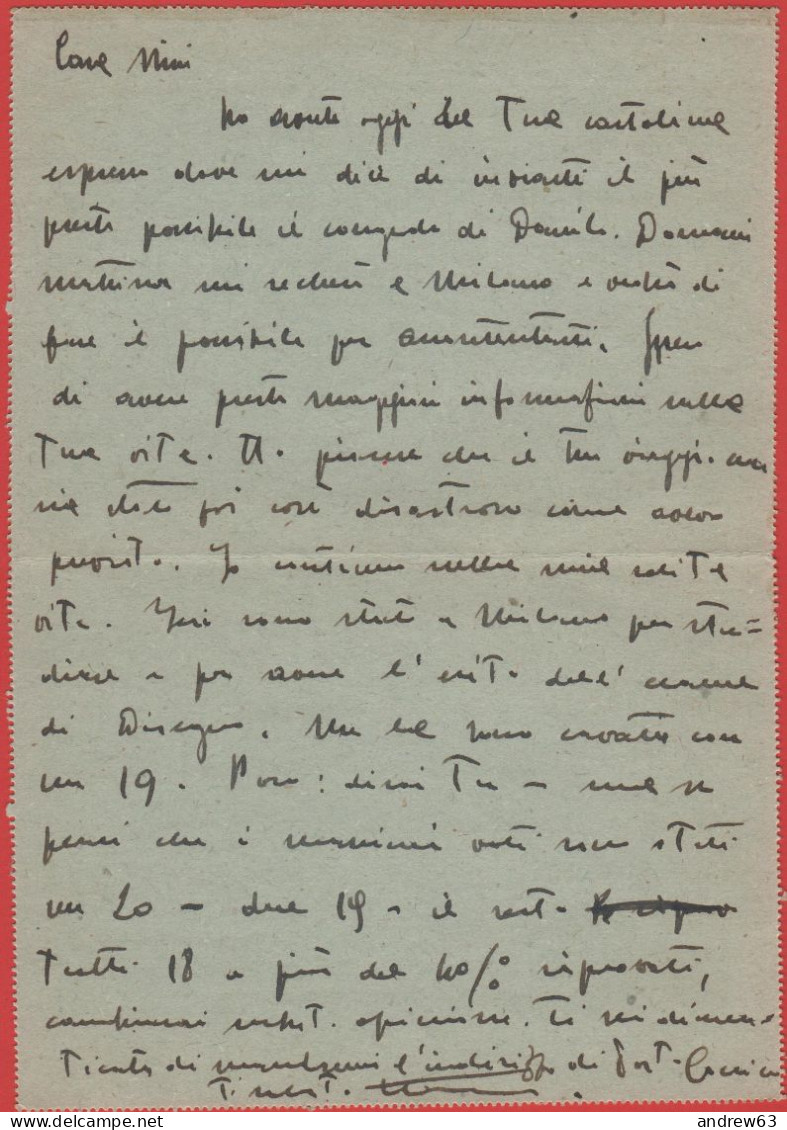 Caro Mimi
ho avuto oggi la Tua cartolina
espresso dove mi dici di inviarti il più
presto possibile il congedo di Danilo. Domani
mattina mi recherò a Milano e vedrò di
fare il possibile per accontentarti. Spero
di avere presto maggiori informazioni sulla
Tua vita. Mi piacere che il tuo viaggio non
sia stato poi così disastroso come avevo
previsto. Io continuo nella mia solita
vita. Ieri sono stato a Milano per stu=
diare e per avere l'esito dell'esame
di Disegno. Me la sono cavata con
un 19. Poco: dirai Tu - ma se
pensi che i massimi voti sono stati
un 20 - due 19 - il resto
Tutti 18 e più del 40% riprovati,
cambierai subito opinione. Ti sei dimen-
ticato di mandarmi l'indirizzo di
andrew63